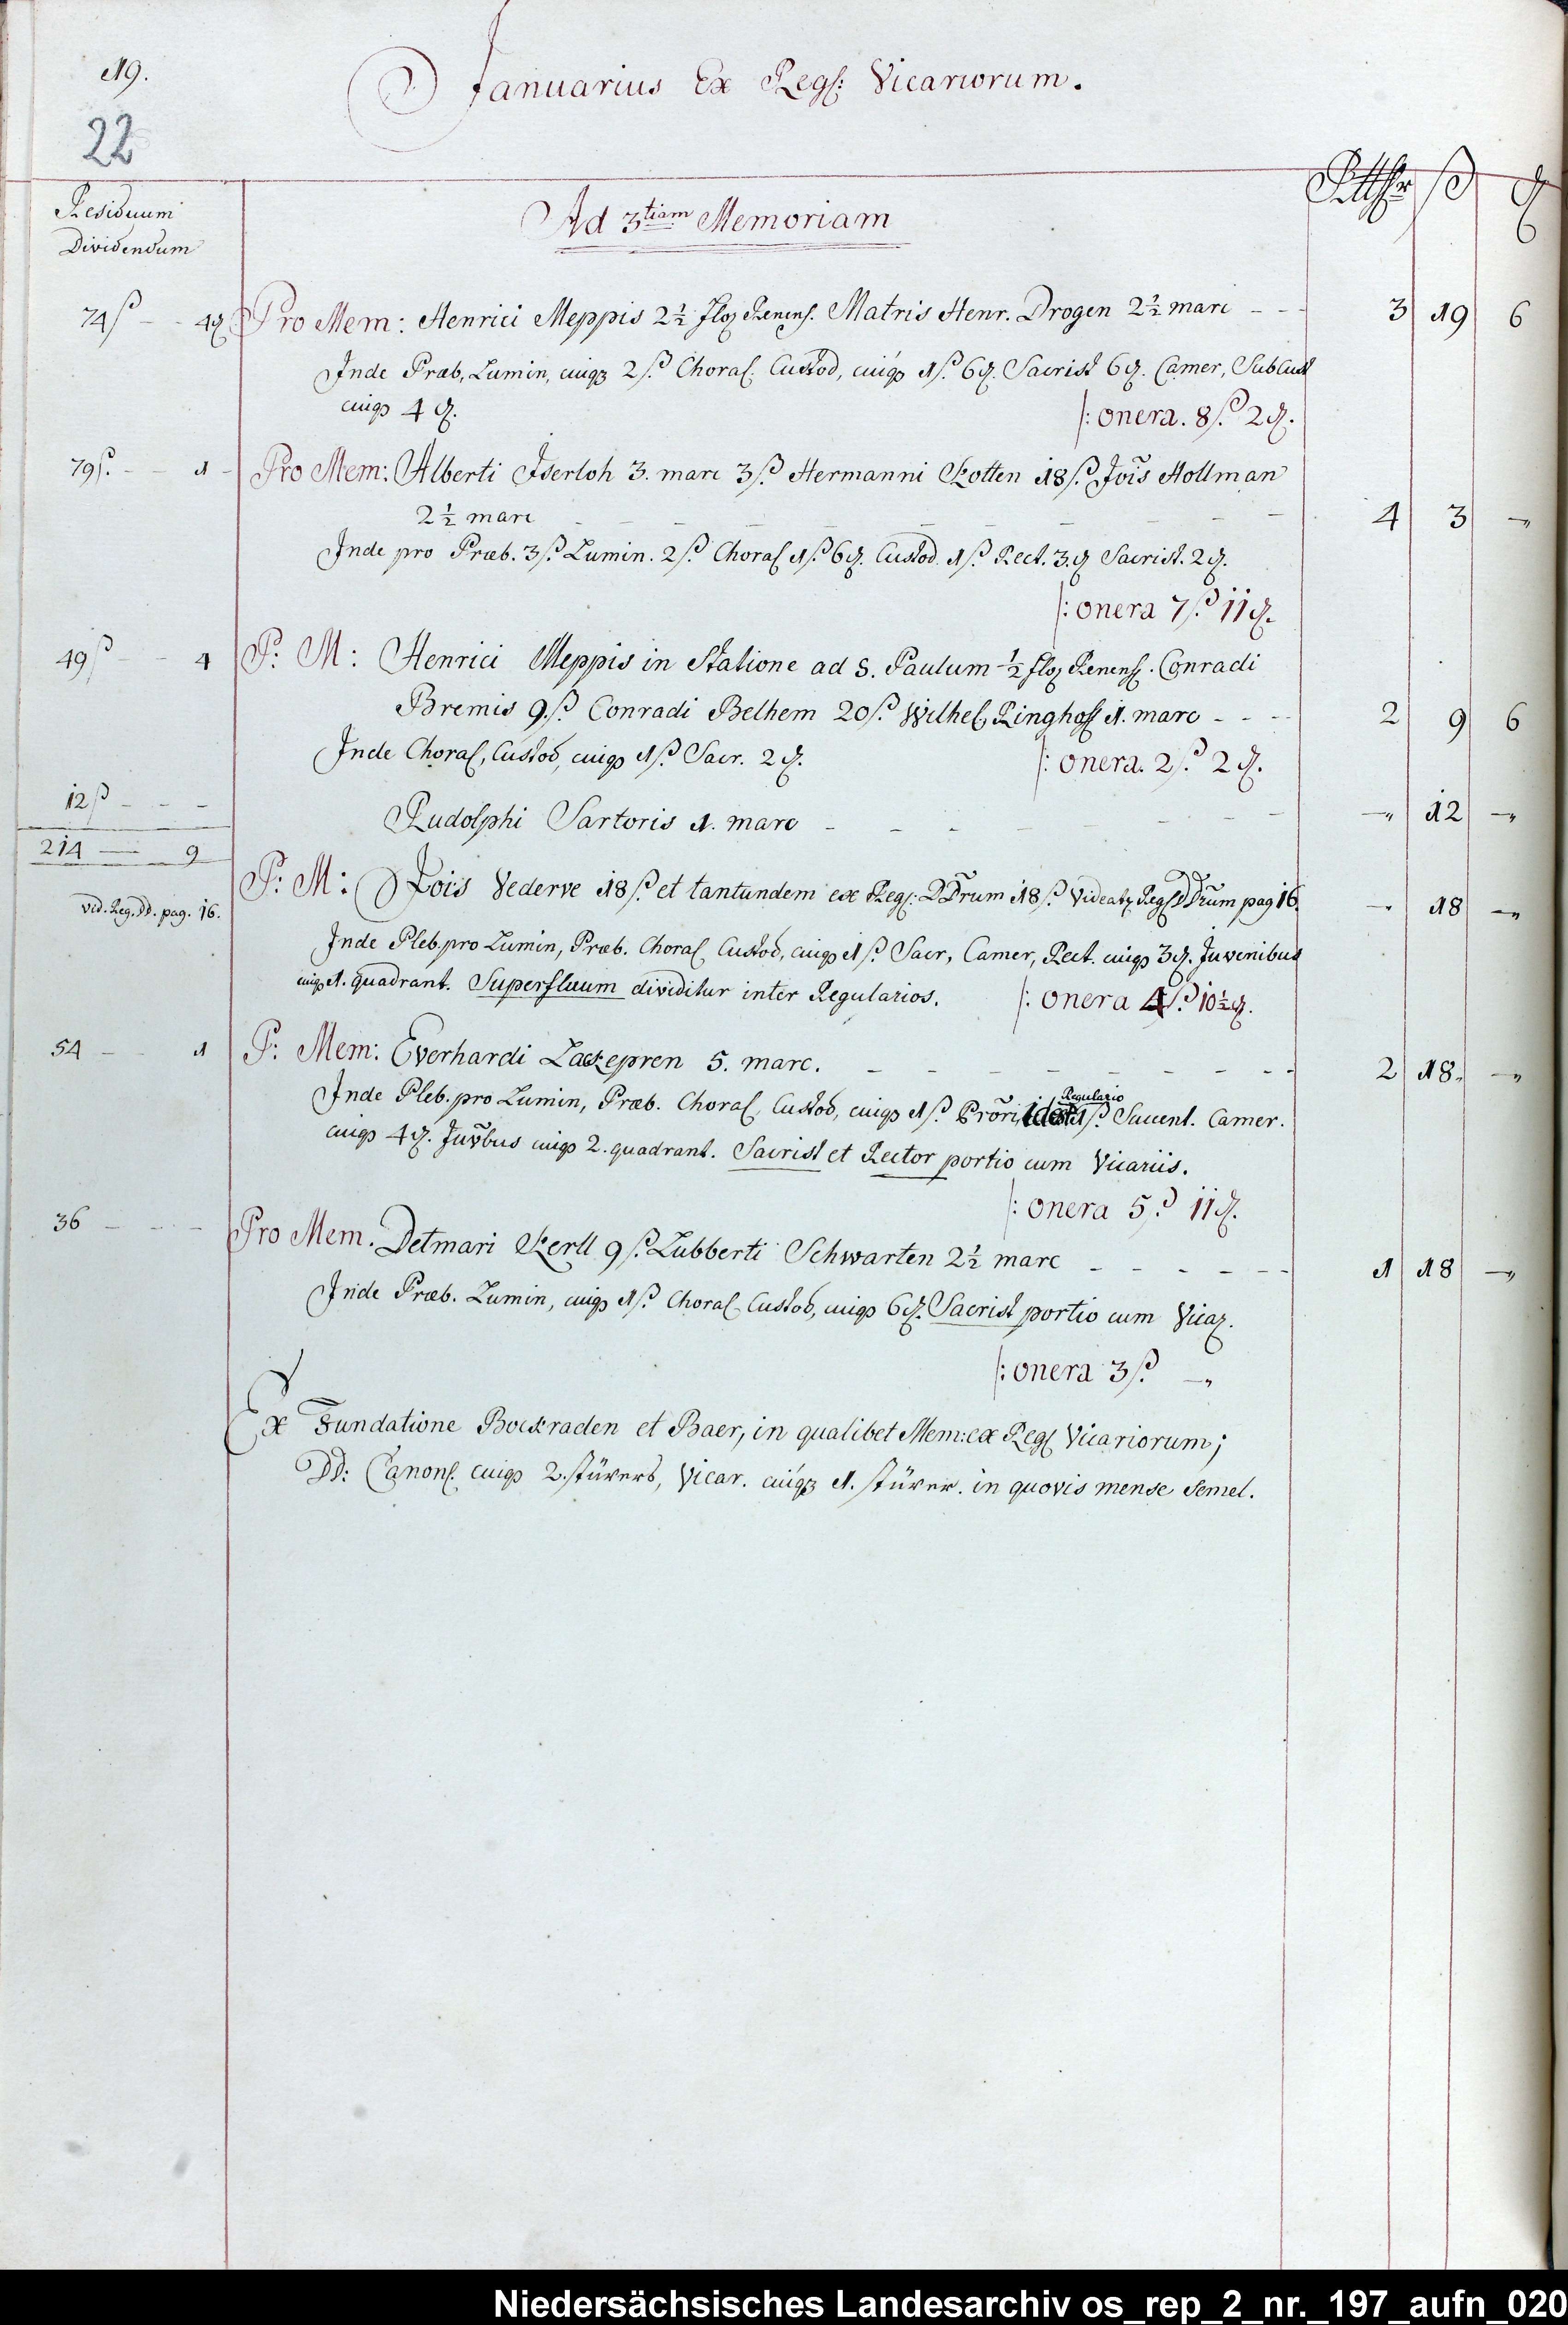 19.
Januarius Ex Regs: Vicariorum.
22
Rtthlr ß ₰
Residuum
Dividendum
Ad 3tiam Memoriam
74 ß - - 4 ₰ Pro Mem: Henrici Meppis 2½ flor Renens. Matris Henr. Drogen 2½ marc - - - 3 19 6
Inde Præb, Lumin, cuiqz 2 ß. Choral. Custod, cuiqz 1 ß. 6 ₰. Sacrist 6 ₰. Camer, SubCust
cuiqz 4 ₰. |: onera. 8 ß. 2 ₰.
79 ß. - - 1 - Pro Mem: Alberti Iserloh 3. marc 3 ß. Hermanni Kotten 18 ß. Jois Hollman
2½ marc - - - - - - - - - - 4 3 -„
Inde pro Præb. 3 ß. Lumin. 2 ß. Choral 1 ß. 6 ₰. Custod. 1 ß. Rect. 3. ₰ Sacrist. 2 ₰.
|: onera 7 ß. 11 ₰.
49 ß - - 4 P: M: Henrici Meppis in Statione ad S. Paulum ½ flor Renens. Conradi
Bremis 9. ß. Conradi Belhem 20 ß. Wilhel. Ringhoff 1. marc - - - - 2 9 6
Inde Choral, Custod, cuiqz 1 ß. Sacr. 2 ₰. |: onera. 2 ß. 2 ₰.
12 ß - - -
Rudolphi Sartoris 1. marc - - - - - - - - -„ 12 -„
214 — 9
P: M: Jois Vederve 18 ß. et tantundem ex Reg: DDrum 18 ß. Videatr Regs DDrum pag 16. -„ 18 -„
vid. Reg. DD. pag. 16.
Inde Pleb. pro Lumin, Præb. Choral, Custod, cuiqz 1 ß. Sacr, Camer, Rect. cuiqz 3 ₰. Juvenibus
cuiqz 1. quadrant. Superfluum dividitur inter Regularios. |: onera 4 ß. 10½ ₰.
54 - - 1 P: Mem: Everhardi Lackepren 5. marc. - - - - - - - - - - 2 18. -„
Regulario
Inde Pleb. pro Lumin, Præb. Choral, Custod, cuiqz 1 ß. Prori, idest 1 ß. Succent. Camer.
cuiqz 4 ₰. Juvbus cuiqz 2. quadrant. Sacrist et Rector portio cum Vicariis.
|: onera 5 ß. 11 ₰.
36 - - - - Pro Mem. Detmari Kerll 9 ß. Lubberti Schwarten 2½ marc - - - - - - 1 18 -„
Inde Præb. Lumin, cuiqz 1 ß. Choral, Custod, cuiqz 6 ₰. Sacrist portio cum Vicar.
|: onera 3 ß. -„
Ex Fundatione Bockraden et Baer, in qualibet Mem: ex Regs Vicariorum;
DD: Canons. cuiqz 2. stüvers, Vicar. cuiqz 1. stüver. in quovis mense semel.
Niedersächsisches Landesarchiv os_rep_2_nr._197_aufn_020